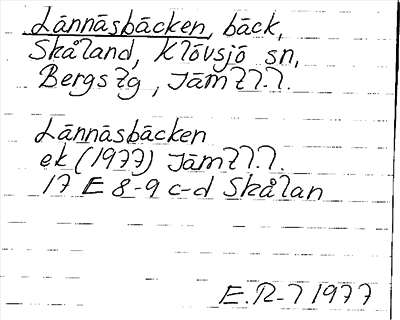 Lännäsbäcken, bäck,
Skåland, Klövsjö sn,
Bergs tg, Jämtl.
Lännäsbäcken
ek (1977) Jämtl.
17 E 8-9 c-d Skålan
E.R-7 1977